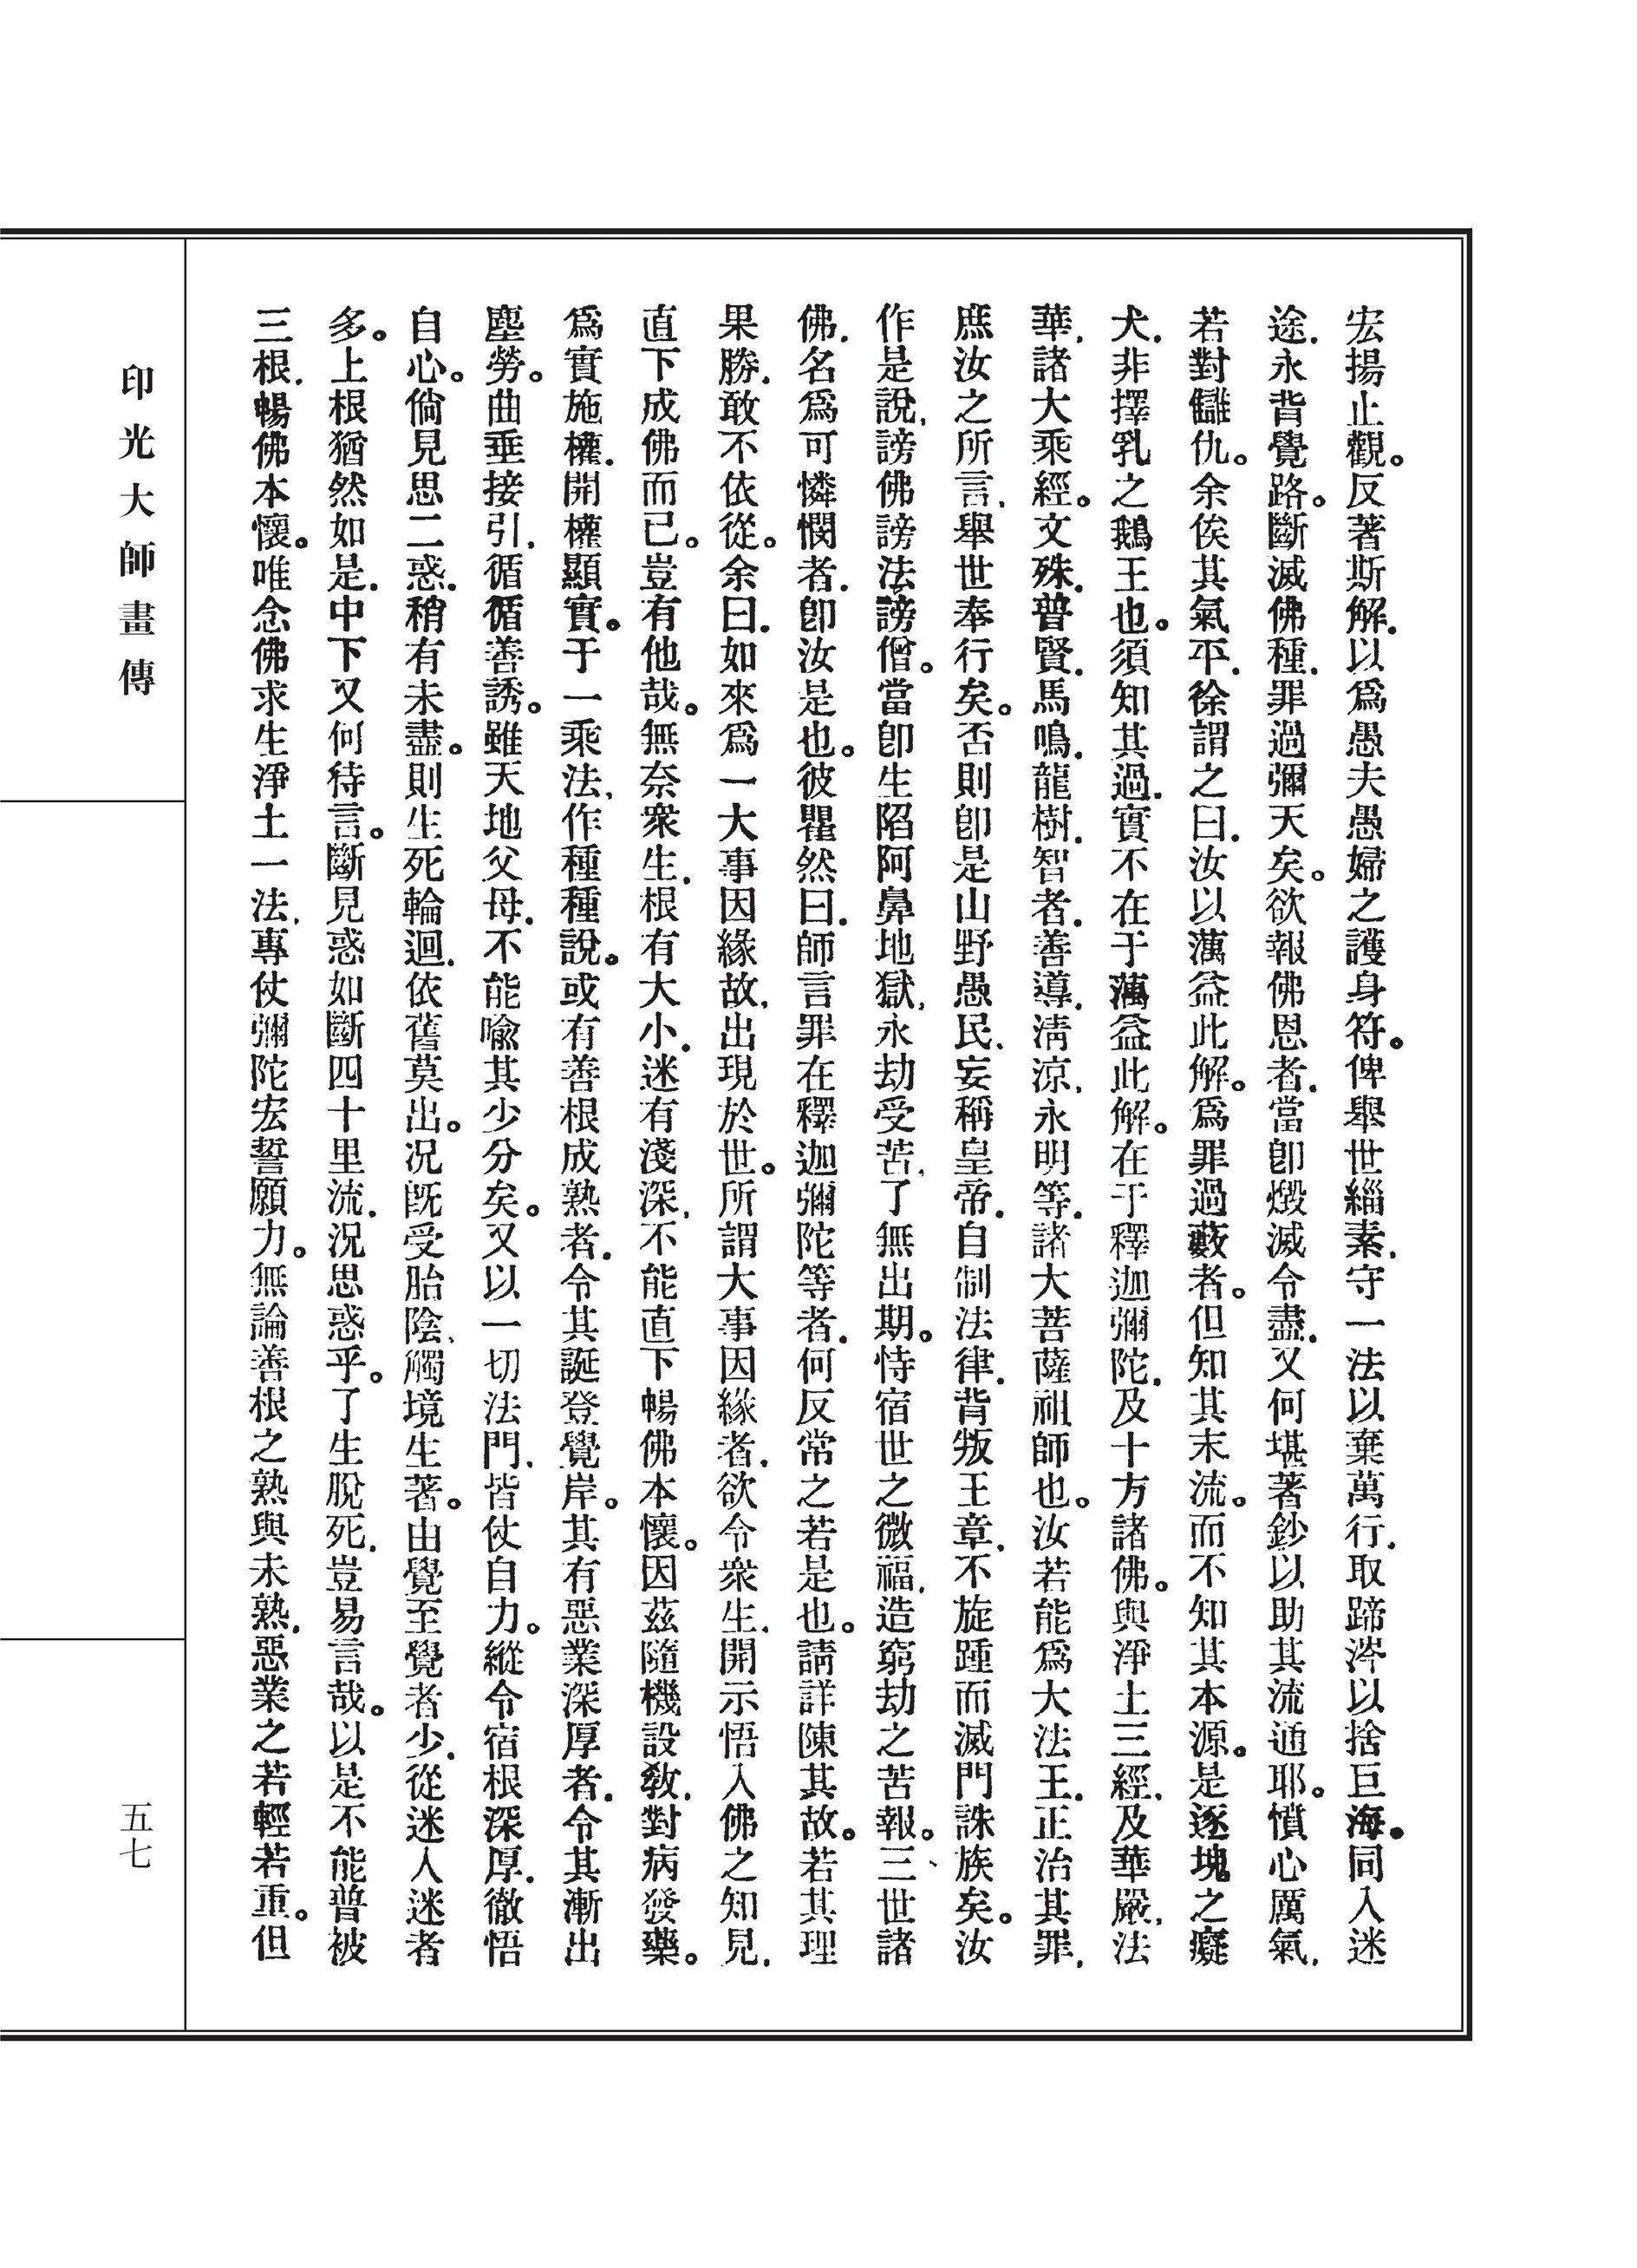 宏揚止觀。反著斯解.以爲愚夫愚婦之護身符。俾舉世緇素,守一法以棄萬行,取蹄涔以捨巨海。同入迷
途.永背覺路。斷滅佛種.罪過彌天矣。欲報佛恩者.當卽燬滅令盡.又何堪著鈔以助其流通耶。憤心厲氣,
若對讎仇。余俟其氣平.徐謂之曰.汝以蕅益此解。爲罪過藪者。但知其末流。而不知其本源。是逐塊之癡
犬.非擇乳之鵝王也。須知其過.實不在于蕅益此解。在于釋迦彌陀.及十方諸佛。與淨土三經,及華嚴,法
華,諸大乘經。文殊.普賢.馬鳴.龍樹.智者.善導,淸涼,永明等.諸大菩薩祖師也。汝若能爲大法王.正治其罪,
庶汝之所言,舉世奉行矣。否則卽是山野愚民,妄稱皇帝.自制法律.背叛王章.不旋踵而滅門誅族矣。汝
作是說,謗佛謗法謗僧。當卽生陷阿鼻地獄,永劫受苦,了無出期。恃宿世之微福,造窮劫之苦報。三世諸
佛,名爲可憐憫者.卽汝是也。彼瞿然曰.師言罪在釋迦彌陀等者.何反常之若是也。請詳陳其故。若其理
果勝.敢不依從。余曰.如來爲一大事因緣故,出現於世。所謂大事因緣者.欲令衆生,開示悟入佛之知見,
直下成佛而已。豈有他哉。無奈衆生.根有大小.迷有淺深,不能直下暢佛本懷。因茲隨機設敎,對病發藥。
爲實施權.開權顯實。于一乘法,作種種說。或有善根成熟者.令其誕登覺岸。其有惡業深厚者.令其漸出
塵勞。曲垂接引,循循善誘。雖天地父母.不能喻其少分矣。又以一切法門,皆仗自力。縱令宿根深厚.徹悟
自心。倘見思二惑.稍有未盡。則生死輪迴.依舊莫出。况旣受胎陰,觸境生著。由覺至覺者少.從迷入迷者
多。上根猶然如是.中下又何待言。斷見惑如斷四十里流.况思惑乎。了生脫死.豈易言哉。以是不能普被
三根,暢佛本懷。唯念佛求生淨土一法,專仗彌陀宏誓願力。無論善根之熟與未熟,惡業之若輕若重。但
印光大師畫傳
五七